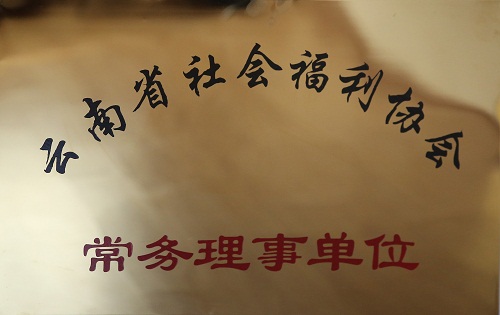 云南省社会福利协会
常务理事单位